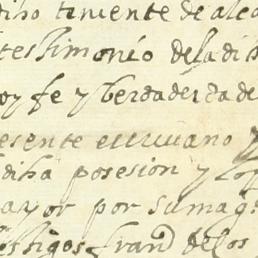 dicho tiniente de alca
testimonio de la dic
oy fe y berdadera de
esente escriuano y
dicha posesion y lo
ayor por su mag
testigos fran.co de los